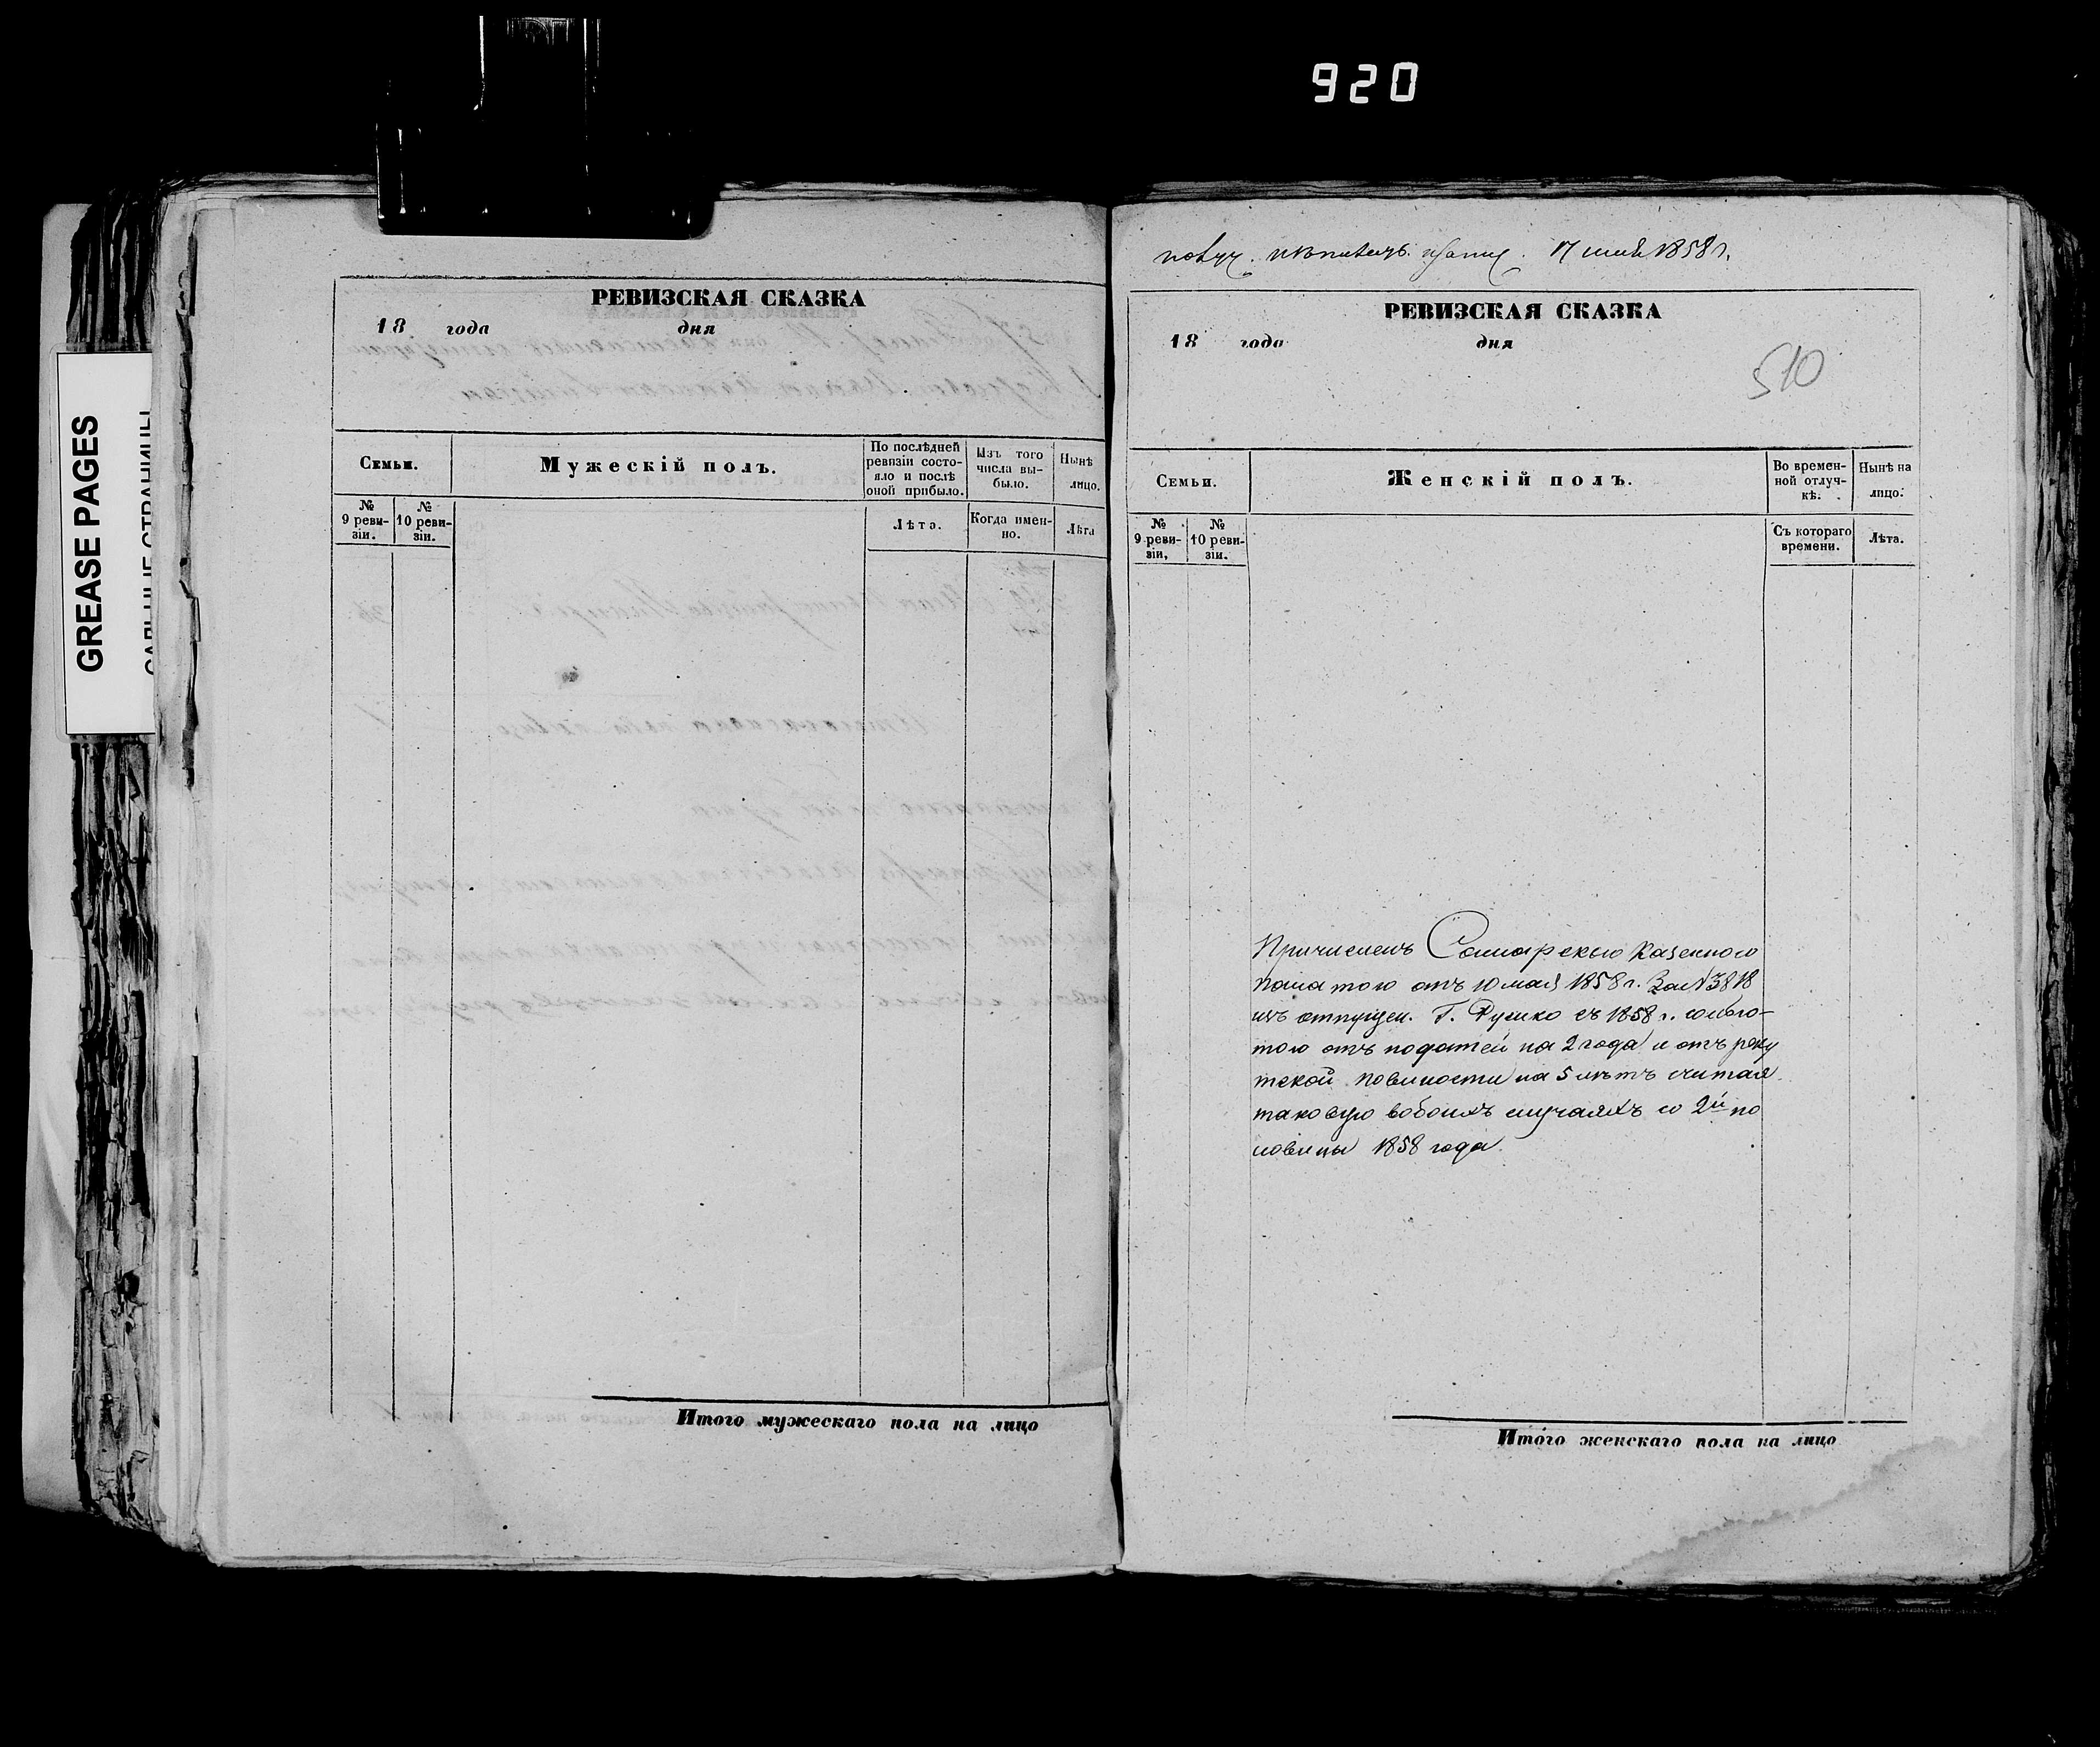 920
GREASE PAGES
РЕВИЗСКАЯ СКАЗКА
18 года дня
Семьи.
Мужескій полъ.
По послѣдней ревизіи состояло и послѣ оной прибыло.
Изъ того числа выбыло.
Нынѣ лицо.
№ 9 ревизіи.
№ 10 ревизіи.
Лѣта.
Когда именно.
Лѣта
Итого мужескаго пола на лицо
17 1858 г.
РЕВИЗСКАЯ СКАЗКА
18 года дня
510
Семьи.
Женскій полъ.
Во временной отлучкѣ.
Нынѣ на лицо.
№ 9 ревизіи,
№ 10 ревизіи.
Съ котораго времени.
Лѣта.
Причисленъ Самарскою Казенною
палатою отъ 10 мая 1858 г. За № 3818
изъ отпущен. Г. съ 1858 г. со льго-
тою отъ податей на 2 года и отъ рекру
тской повиности на 5 лѣтъ считая
таковую вобоихъ случаяхъ со 2й по
ловины 1858 года
Итого женскаго пола на лицо